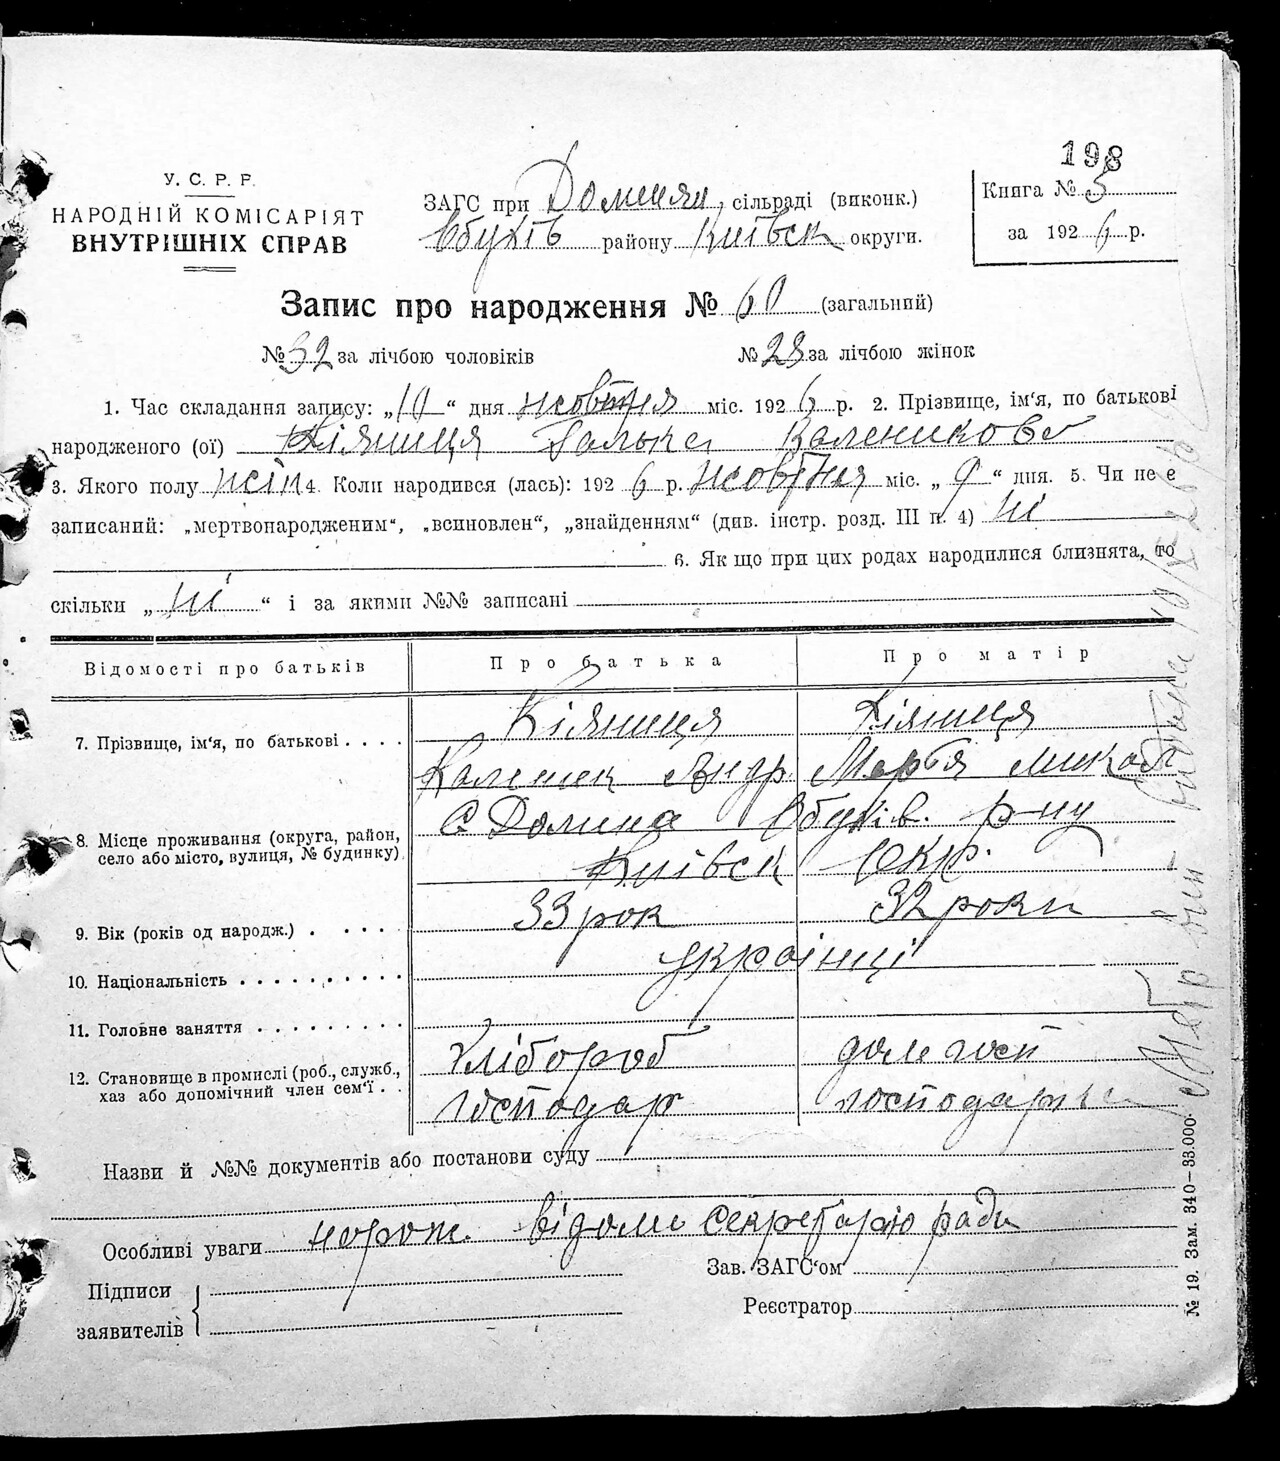 198
У. С. Р. Р.
НАРОДНІЙ КОМІСАРІЯТ
ВНУТРІШНІХ СПРАВ
ЗАГС при Долинян. сільраді (виконк.)
Обухів району Київськ округи.
Книга № 5
за 1926 р.
Запис про народження № 60 (загальний)
№ 32 за лічбою чоловіків № 28 за лічбою жінок
1. Час складання запису: „10“ дня жовтня міс. 1926 р. 2. Прізвище, ім‘я, по батькові
народженого (ої) Кіяниця Галька Каленикова
3. Якого полу жін 4. Коли народився (лась): 1926 р. жовтня міс. „9“ дня. 5. Чи не є
записаний: „мертвонародженим“, „всиновлен“, „знайденням“ (див. інстр. розд. III п. 4) ні
6. Як що при цих родах народилися близнята, то
скільки „ні“ і за якими №№ записані
Відомості про батьків Про батька Про матір
7. Прізвище, ім‘я, по батькові . . . . Кіяниця Кіяниця
Каленик Андр. Мар‘я Микол
8. Місце проживання (округа, район, село або місто, вулиця, № будинку) С Долина Обухів. р-ну
Київськ Окр.
9. Вік (років од народж.) . . . . . 33 рок 32 роки
10. Національність . . . . . . . . . . українці
11. Головне заняття . . . . . . . . . Хлібороб дом госп
12. Становище в промислі (роб., служб., хаз або допомічний член сем‘ї . . господар господарка
Назви й №№ документів або постанови суду
Особливі уваги нарож. відоме секретарю ради
Підписи
заявителів
Зав. ЗАГС‘ом
Реєстратор
№ 19. Зам. 340—33.000.